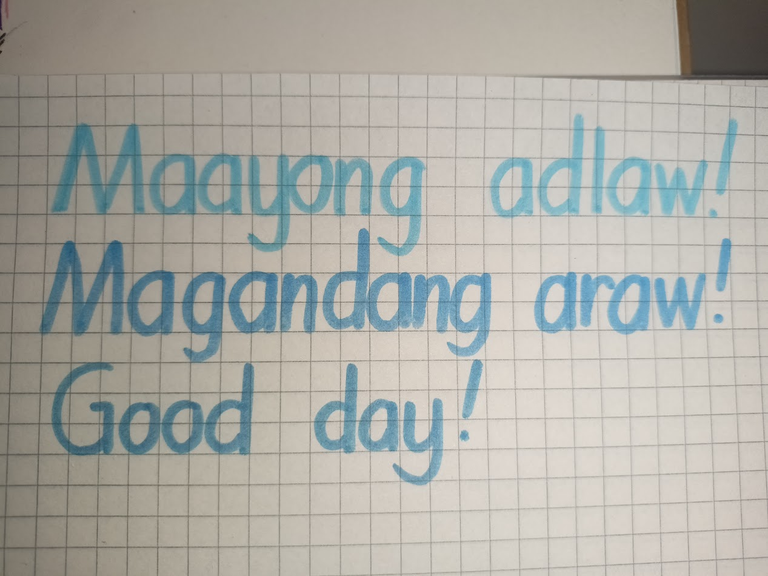 Maayong adlaw!
Magandang araw!
Good day!